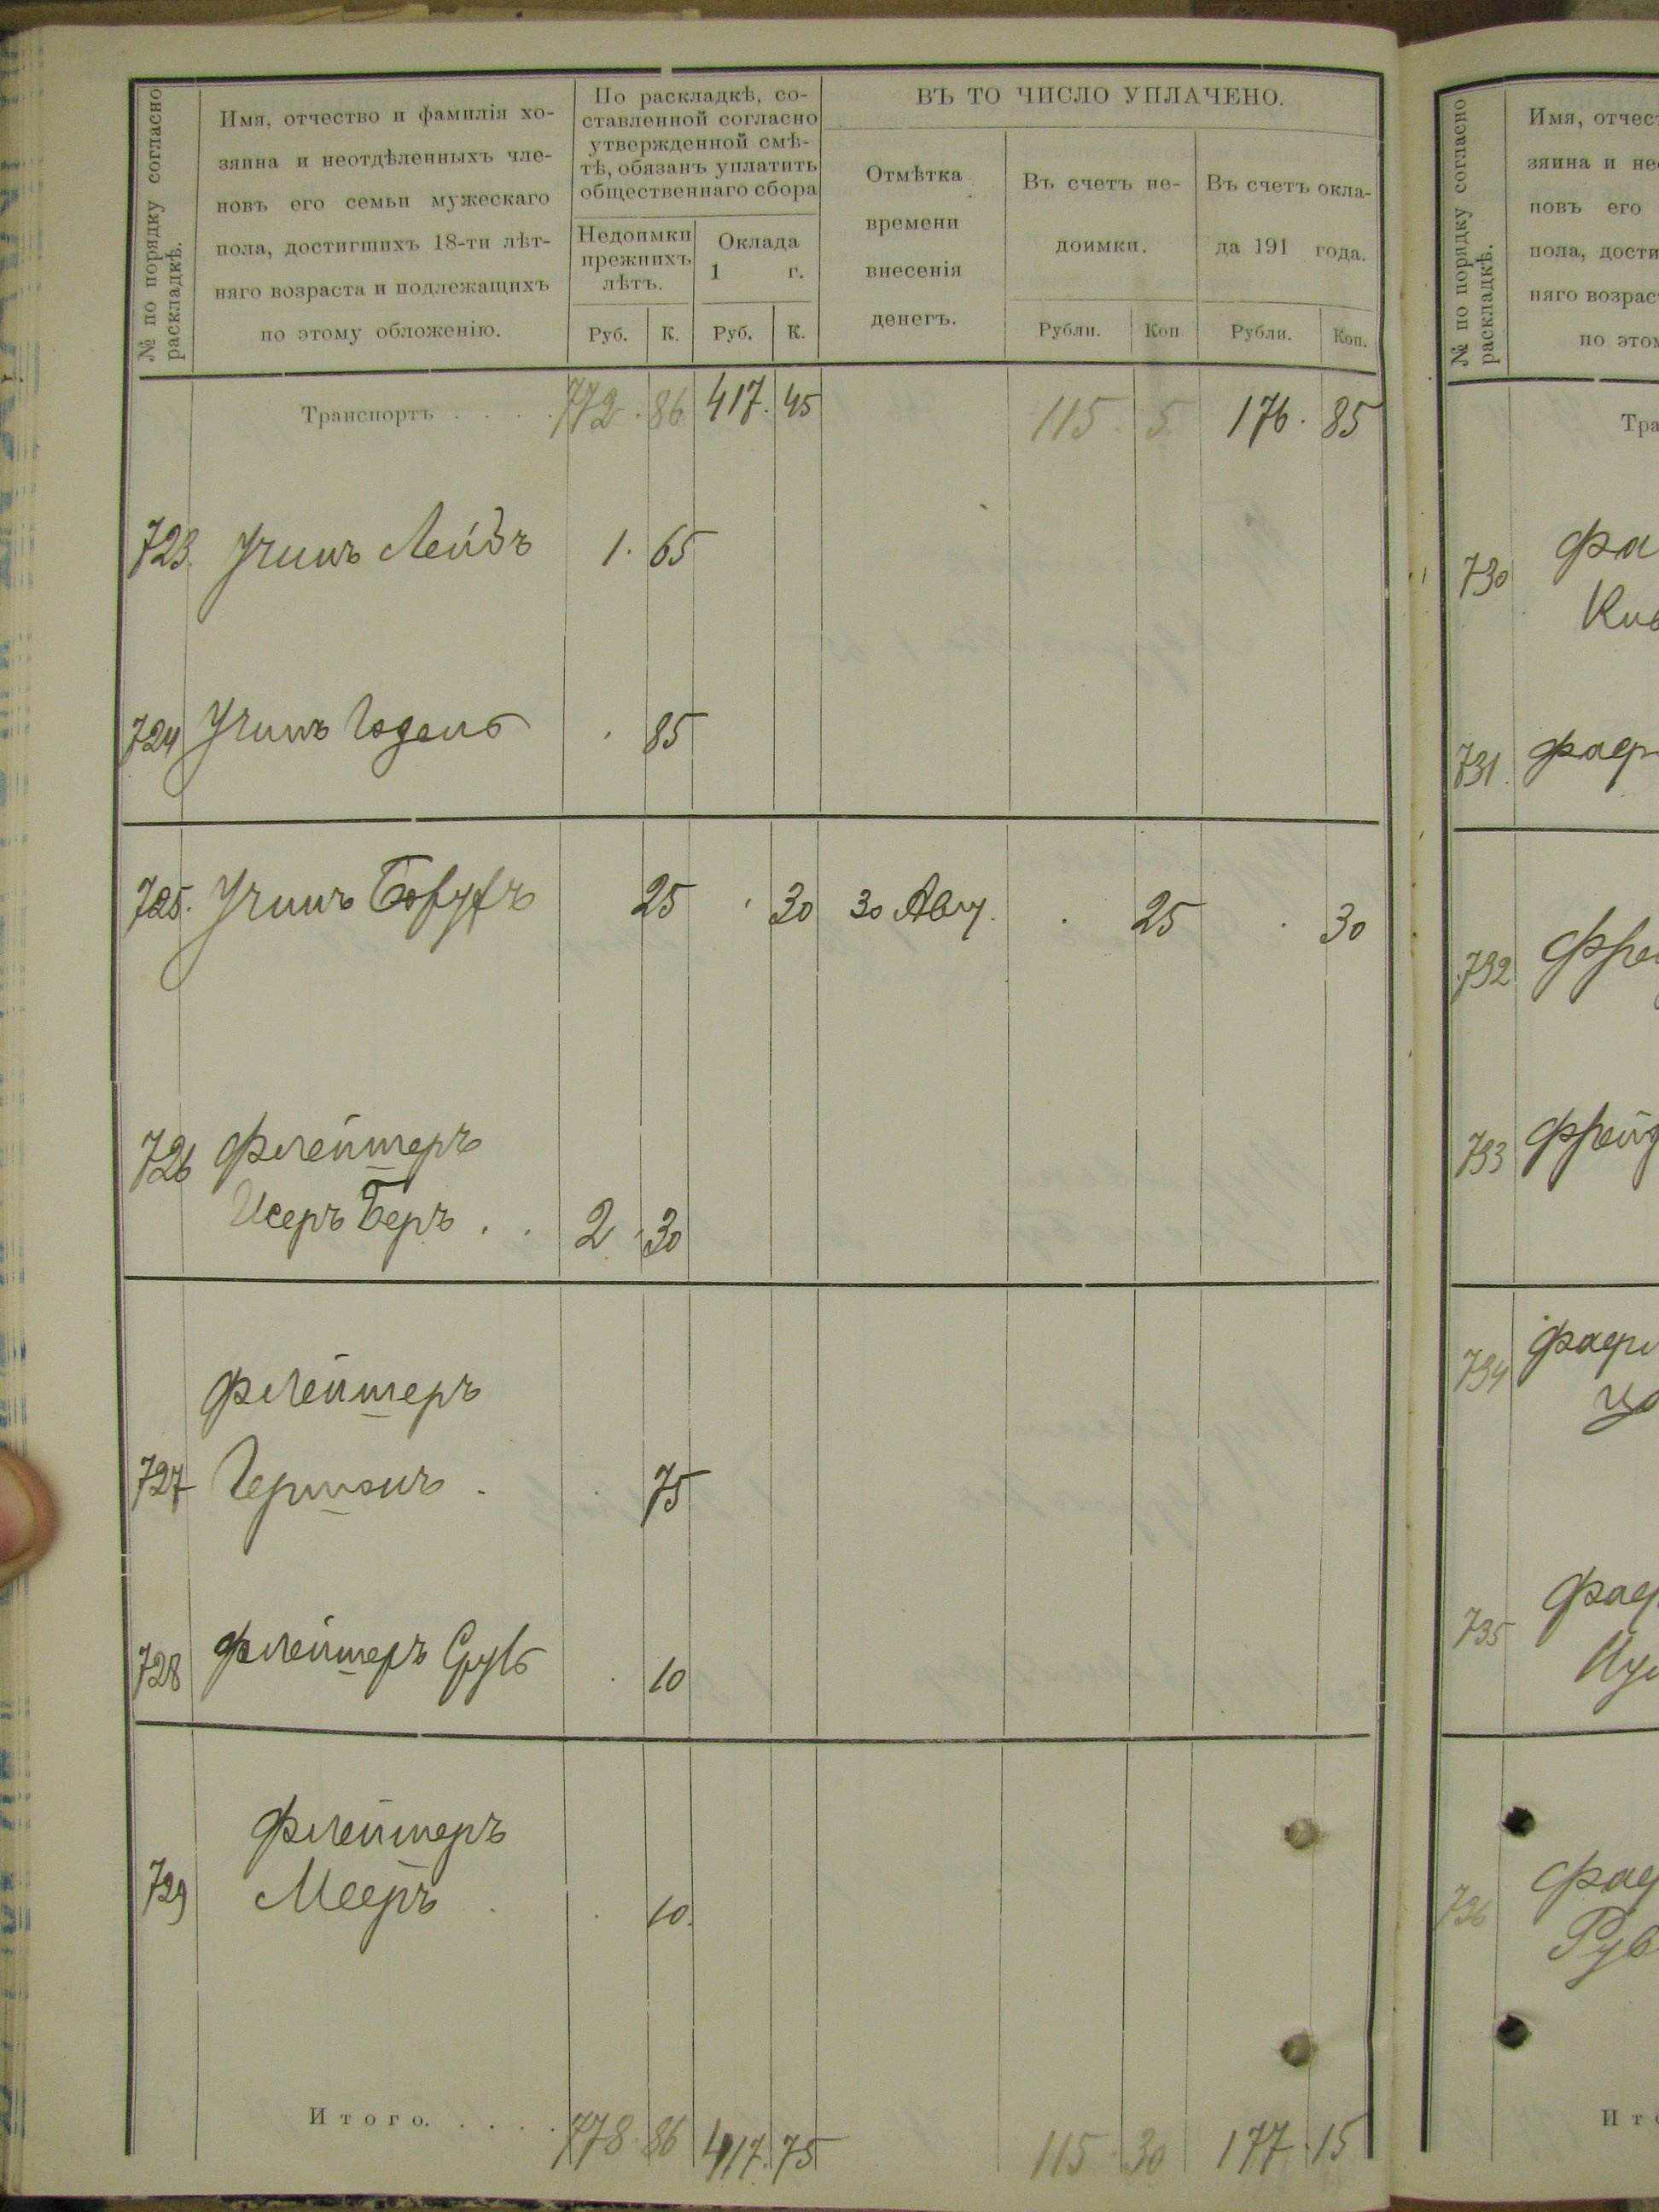 № по порядку согласно раскладкѣ.
Имя, отчество и фамилія хо-
зяина и неотдѣленныхъ чле-
новъ его семьи мужескаго
пола, достигшихъ 18-ти лѣт-
няго возраста и подлежащихъ
по этому обложенію.
По раскладкѣ, со-
ставленной согласно
утвержденной смѣ-
тѣ, обязанъ уплатить
общественнаго сбора
Недоимки
прежнихъ
лѣтъ.
Оклада
1 г.
Руб. К. Руб. К.
ВЪ ТО ЧИСЛО УПЛАЧЕНО.
Отмѣтка
времени
внесенія
денегъ.
Въ счетъ не-
доимки.
Въ счетъ окла-
да 191 года.
Рубли. Коп Рубли. Коп.
Транспортъ . . . . 772. 86 417. 45 115. 5. 176. 85
723. Учинъ Лейбъ 1. 65
724 Учинъ Годель 85
725. Учинъ Борухъ 25 30 30 Авгу. 25 30
726 Флейшеръ
Исеръ Беръ . . 2 30
Флейшеръ
727 Гершонъ . 75
728 Флейшеръ 10
Флейшеръ
729 Мееръ 10.
Итого. . . . . 778. 86 417. 75 115 30 177. 15
№ по порядку согласно раскладкѣ.
Имя, отчес
зяина и не
новъ его
пола, дости
няго возрас
по этом
Тра
730 Фа
Кив
731. Фаер
732 Фрей
733 Фрейд
734 Фаер
735 Фае
736 Фае
Рув
Ито